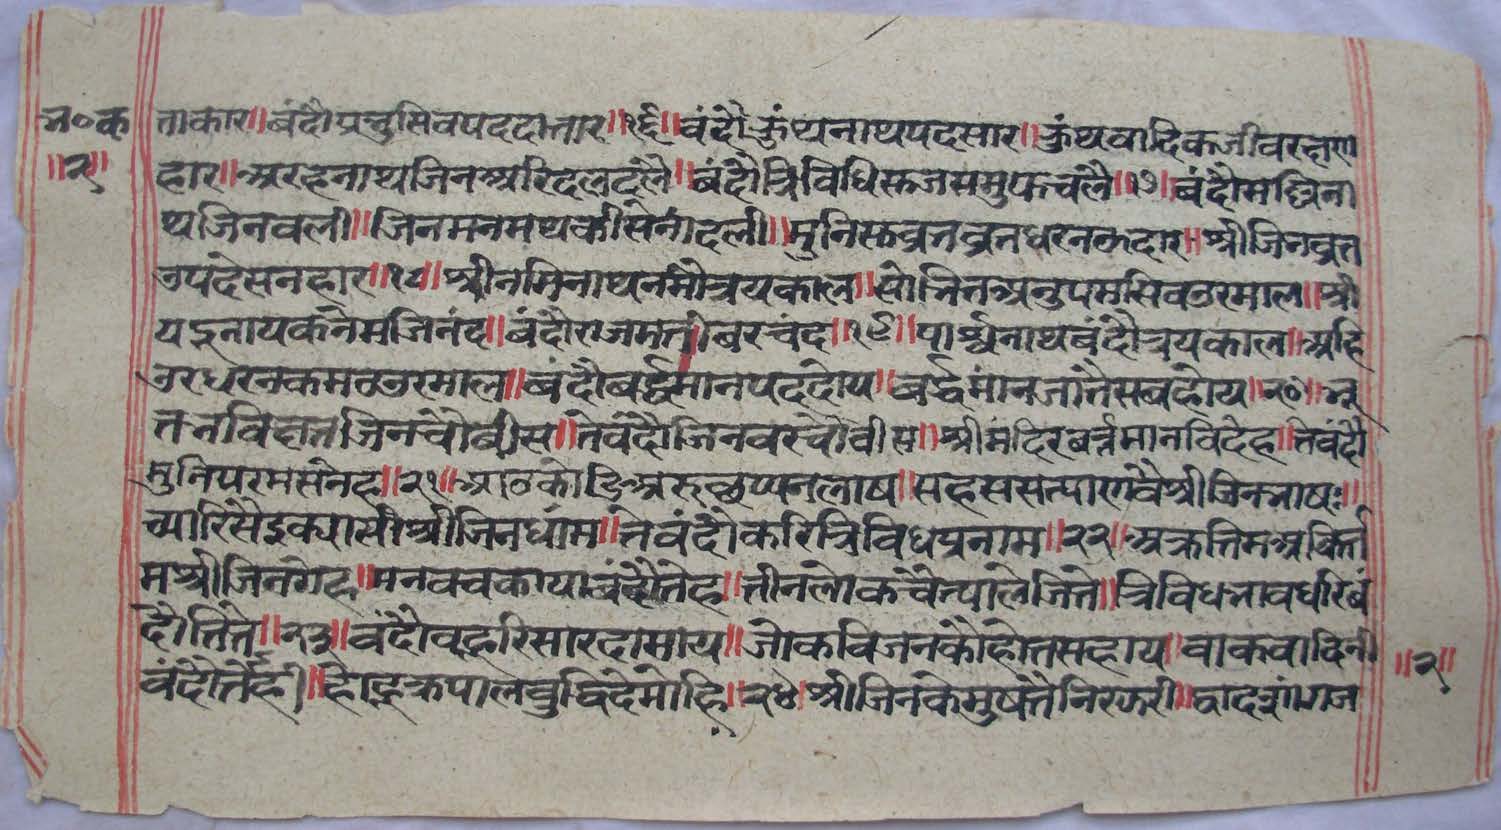 न०क
॥२॥
ताकार॥बंदौप्रनुसिवपददातार॥१६॥वंदौकुंथनाथपदसार॥कुंथवादिकजीवरहाण
हार॥अरहनाथजिनअरिदलदलै॥बंदौत्रिविधिसुजसमुफचलै॥१७॥बंदौमल्लिना
थजिनवली॥जिनमनमथकीसेनादली॥मुनिसुव्रतव्रतधरनकदार॥श्रीजिनव्रत
उपदेसनहार॥१८॥श्रीनमिनाथनमौत्रयकाल॥सोनितअनुपमसिवउरमाल॥श्री
यदुनायकनेमजिनंद॥बंदौराजमतीबरचंद॥१९॥पार्श्वनाथबंदौत्रयकाल॥अहि
उरधरनकमठउरमाल॥बंदौबर्द्धमानपददोय॥बर्द्धमानजातैसबहोय॥२०॥नू
तनविहातजिनचोवीस॥तेवंदौजिनवरचौवीस॥श्रीमंदिरबर्त्तमानविदेह॥तेवंदौ
मुनिपरमसनेह॥२१॥आठकोडिअरुछप्पनलाष॥सहससत्याणवैश्रीजिनभाष॥
च्यारिसैइक्यासीश्रीजिनधाम॥तेवंदौकरित्रिविधप्रनाम॥२२॥अक्रत्तिमअक्रित्ति
मश्रीजिनगेह॥मनवचकायाबंदौतेह॥तीनलोकचैत्यालेजिते॥त्रिविधभावधरिबं
दौतिते॥२३॥वंदौवहुरिसारदामाय॥जोकविजनकौहोतसहाय॥वाकवादिनी
वंदौतोहि॥होहुक्रपालबुद्धिदेमोहि॥२४॥श्रीजिनकेमुषतैनिरफरी॥द्वादशांगज
॥२॥